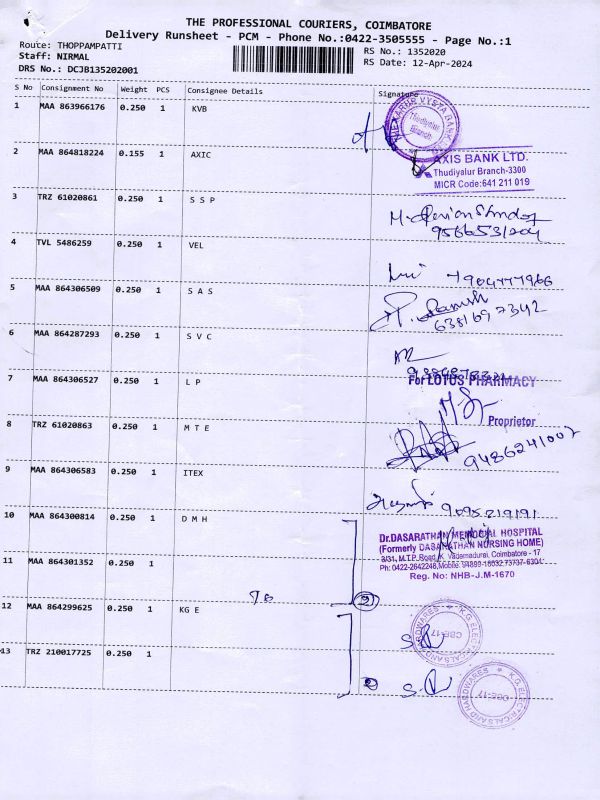 THE PROFESSIONAL COURIERS, COIMBATORE
Delivery Runsheet - PCM - Phone No.:0422-3505555 - Page No.:1
Route: THOPPAMPATTI
RS No.: 1352020
Staff: NIRMAL
RS Date: 12-Apr-2024
DRS No.: DCJB135202001
S No Consignment No Weight PCS Consignee Details Signature
1 MAA 863966176 0.250 1 KVB
THE KARUR VYSYA BANK
Thudiyalur
Branch
2 MAA 864818224 0.155 1 AXIC
AXIS BANK LTD.
Thudiyalur Branch-3300
MICR Code:641 211 019
3 TRZ 61020861 0.250 1 S S P
4 TVL 5486259 0.250 1 VEL
7904777966
5 MAA 864306509 0.250 1 S A S
6381697342
6 MAA 864287293 0.250 1 S V C
7 MAA 864306527 0.250 1 L P
For LOTUS PHARMACY
Proprietor
8 TRZ 61020863 0.250 1 M T E
9486241007
9 MAA 864306583 0.250 1 ITEX
9095219191
10 MAA 864300814 0.250 1 D M H
Dr.DASARATHAN MEMORIAL HOSPITAL
(Formerly DASARATHAN NURSING HOME)
3/31, M.T.P. Road, K. Vadamadurai, Coimbatore - 17
Ph: 0422-2642248,Mobile:
Reg. No: NHB-J.M-1670
11 MAA 864301352 0.250 1
12 MAA 864299625 0.250 1 KG E
K.G. ELECTRICALS AND HARDWARES
CBE-17
13 TRZ 210017725 0.250 1
2
K.G. ELECTRICALS AND HARDWARES
CBE-17